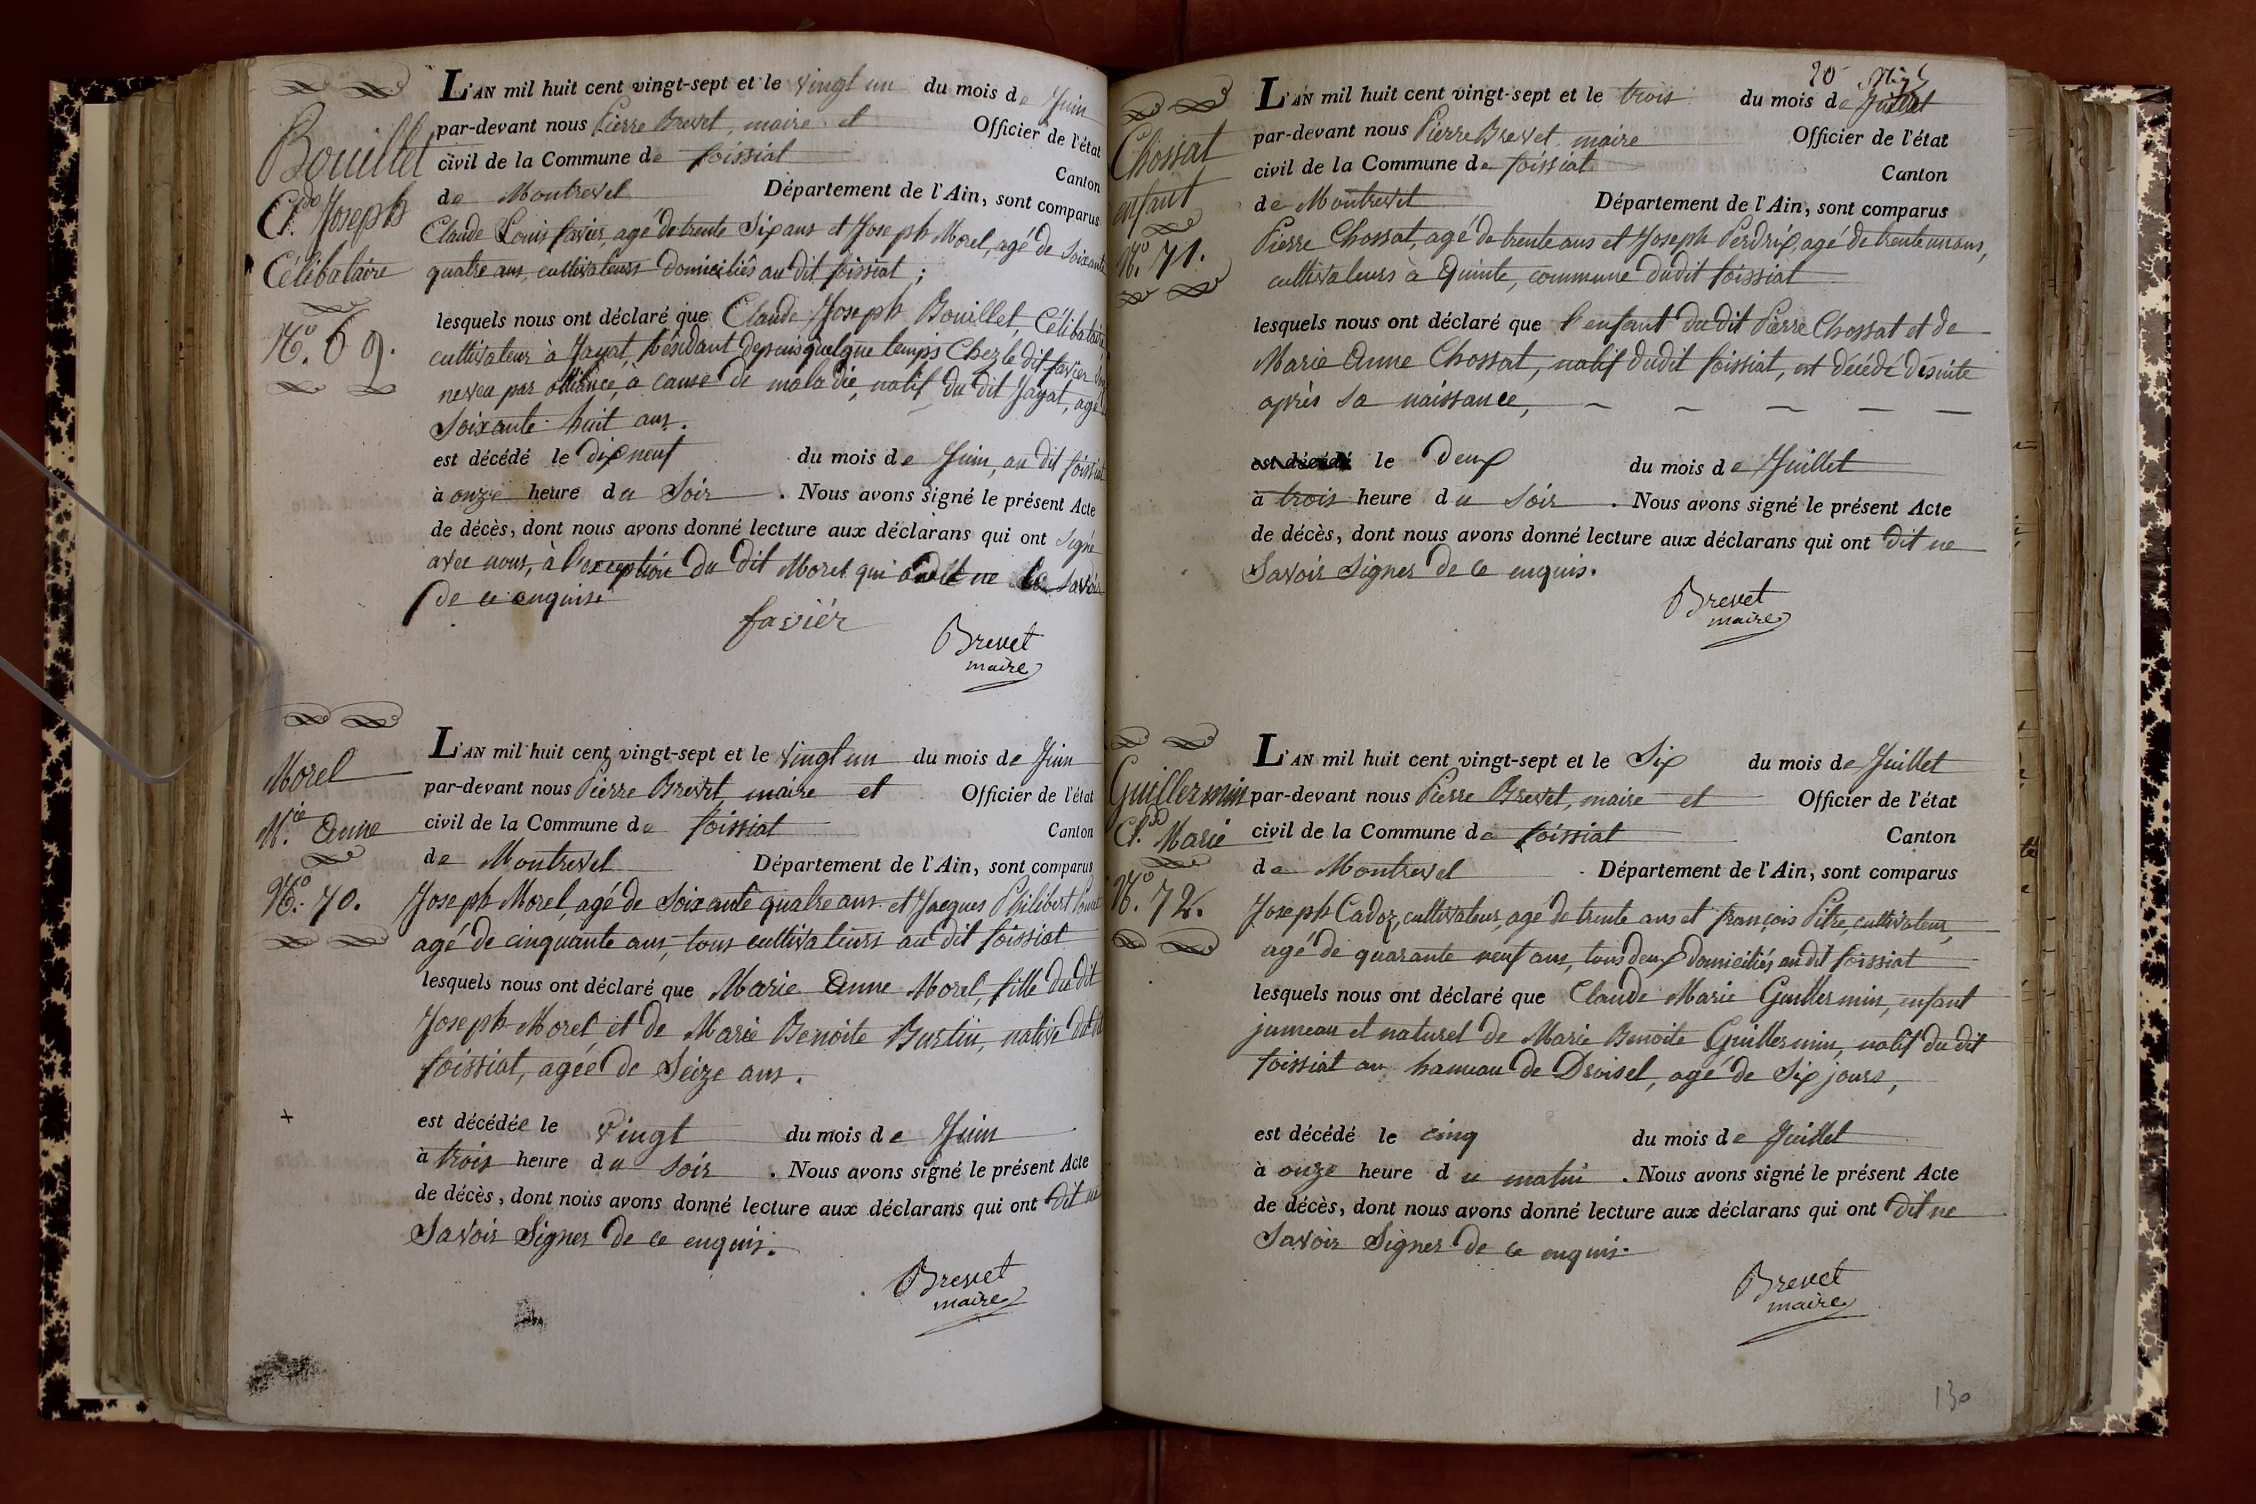 Bouillet
Cl.de Joseph
Célibataire
N.o 69.
L'AN mil huit cent vingt-sept et le vingt un du mois de Juin
par-devant nous Pierre Brevet, maire et Officier de l'état
civil de la Commune de foissiat Canton
de Montrevel Département de l'Ain, sont comparus
Claude Louis favier, agé de trente Six ans et Joseph Morel, agé de Soixante
quatre ans, cultivateurs domiciliés au dit foissiat ;
lesquels nous ont déclaré que Claude Joseph Bouillet, Célibataire
cultivateur à Jayat, résidant depuis quelque temps chez le dit favier
neveu par alliance, à cause de maladie, natif du dit Jayat, agé
Soixante huit ans.
est décédé le dix neuf du mois de Juin, au dit foissiat
à onze heure du Soir . Nous avons signé le présent Acte
de décès, dont nous avons donné lecture aux déclarans qui ont Signé
avec nous, à l'exception du dit Morel qui a dit ne le savoir
de ce enquis.
favier
Brevet
maire
Morel
M.ie Anne
N.o 70.
L'AN mil huit cent vingt-sept et le vingt un du mois de Juin
par-devant nous Pierre Brevet, maire et Officier de l'état
civil de la Commune de foissiat Canton
de Montrevel Département de l'Ain, sont comparus
Joseph Morel, agé de Soixante quatre ans et Jacques Philibert
agé de cinquante ans, tous cultivateurs au dit foissiat
lesquels nous ont déclaré que Marie Anne Morel, fille du dit
Joseph Morel et de Marie Benoite Burtin, native du dit
foissiat, agée de Seize ans.
+
est décédée le vingt du mois de Juin
à trois heure du soir . Nous avons signé le présent Acte
de décès, dont nous avons donné lecture aux déclarans qui ont dit ne
Savoir Signer de ce enquis.
Brevet
maire
20
Chossat
enfant
N.o 71.
L'AN mil huit cent vingt-sept et le trois du mois de Juillet
par-devant nous Pierre Brevet, maire Officier de l'état
civil de la Commune de foissiat Canton
de Montrevel Département de l'Ain, sont comparus
Pierre Chossat, agé de trente ans et Joseph Perdrix, agé de trente un ans,
cultivateurs à Quinte, commune dudit foissiat
lesquels nous ont déclaré que l'enfant du dit Pierre Chossat et de
Marie Anne Chossat, natif dudit foissiat, est décédé desuite
après sa naissance,
est décédé le deux du mois de Juillet
à trois heure du soir . Nous avons signé le présent Acte
de décès, dont nous avons donné lecture aux déclarans qui ont dit ne
Savoir Signer de ce enquis.
Brevet
maire
Guillermin
Cl.de Marie
N.o 72.
L'AN mil huit cent vingt-sept et le Six du mois de Juillet
par-devant nous Pierre Brevet, maire et Officier de l'état
civil de la Commune de foissiat Canton
de Montrevel . Département de l'Ain, sont comparus
Joseph Cadoz, cultivateur, agé de trente ans et françois Pitre, cultivateur,
agé de quarante neuf ans, tous deux domiciliés au dit foissiat
lesquels nous ont déclaré que Claude Marie Guillermin, enfant
jumeau et naturel de Marie Benoite Guillermin, natif du dit
foissiat au hameau de Droisel, agé de Six jours,
est décédé le cinq du mois de Juillet
à onze heure du matin . Nous avons signé le présent Acte
de décès, dont nous avons donné lecture aux déclarans qui ont dit ne
Savoir Signer de ce enquis.
Brevet
maire
130